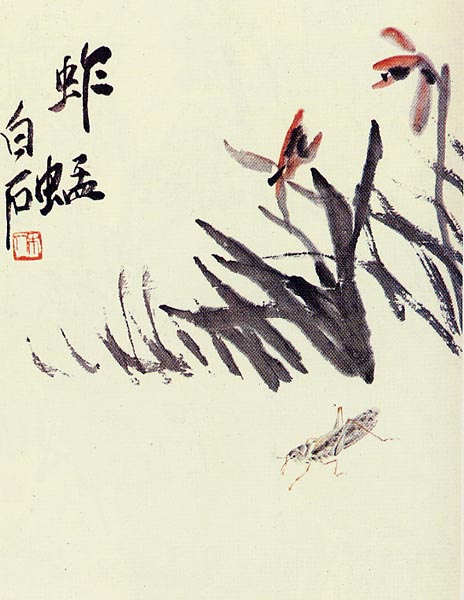 蚱蜢
白石